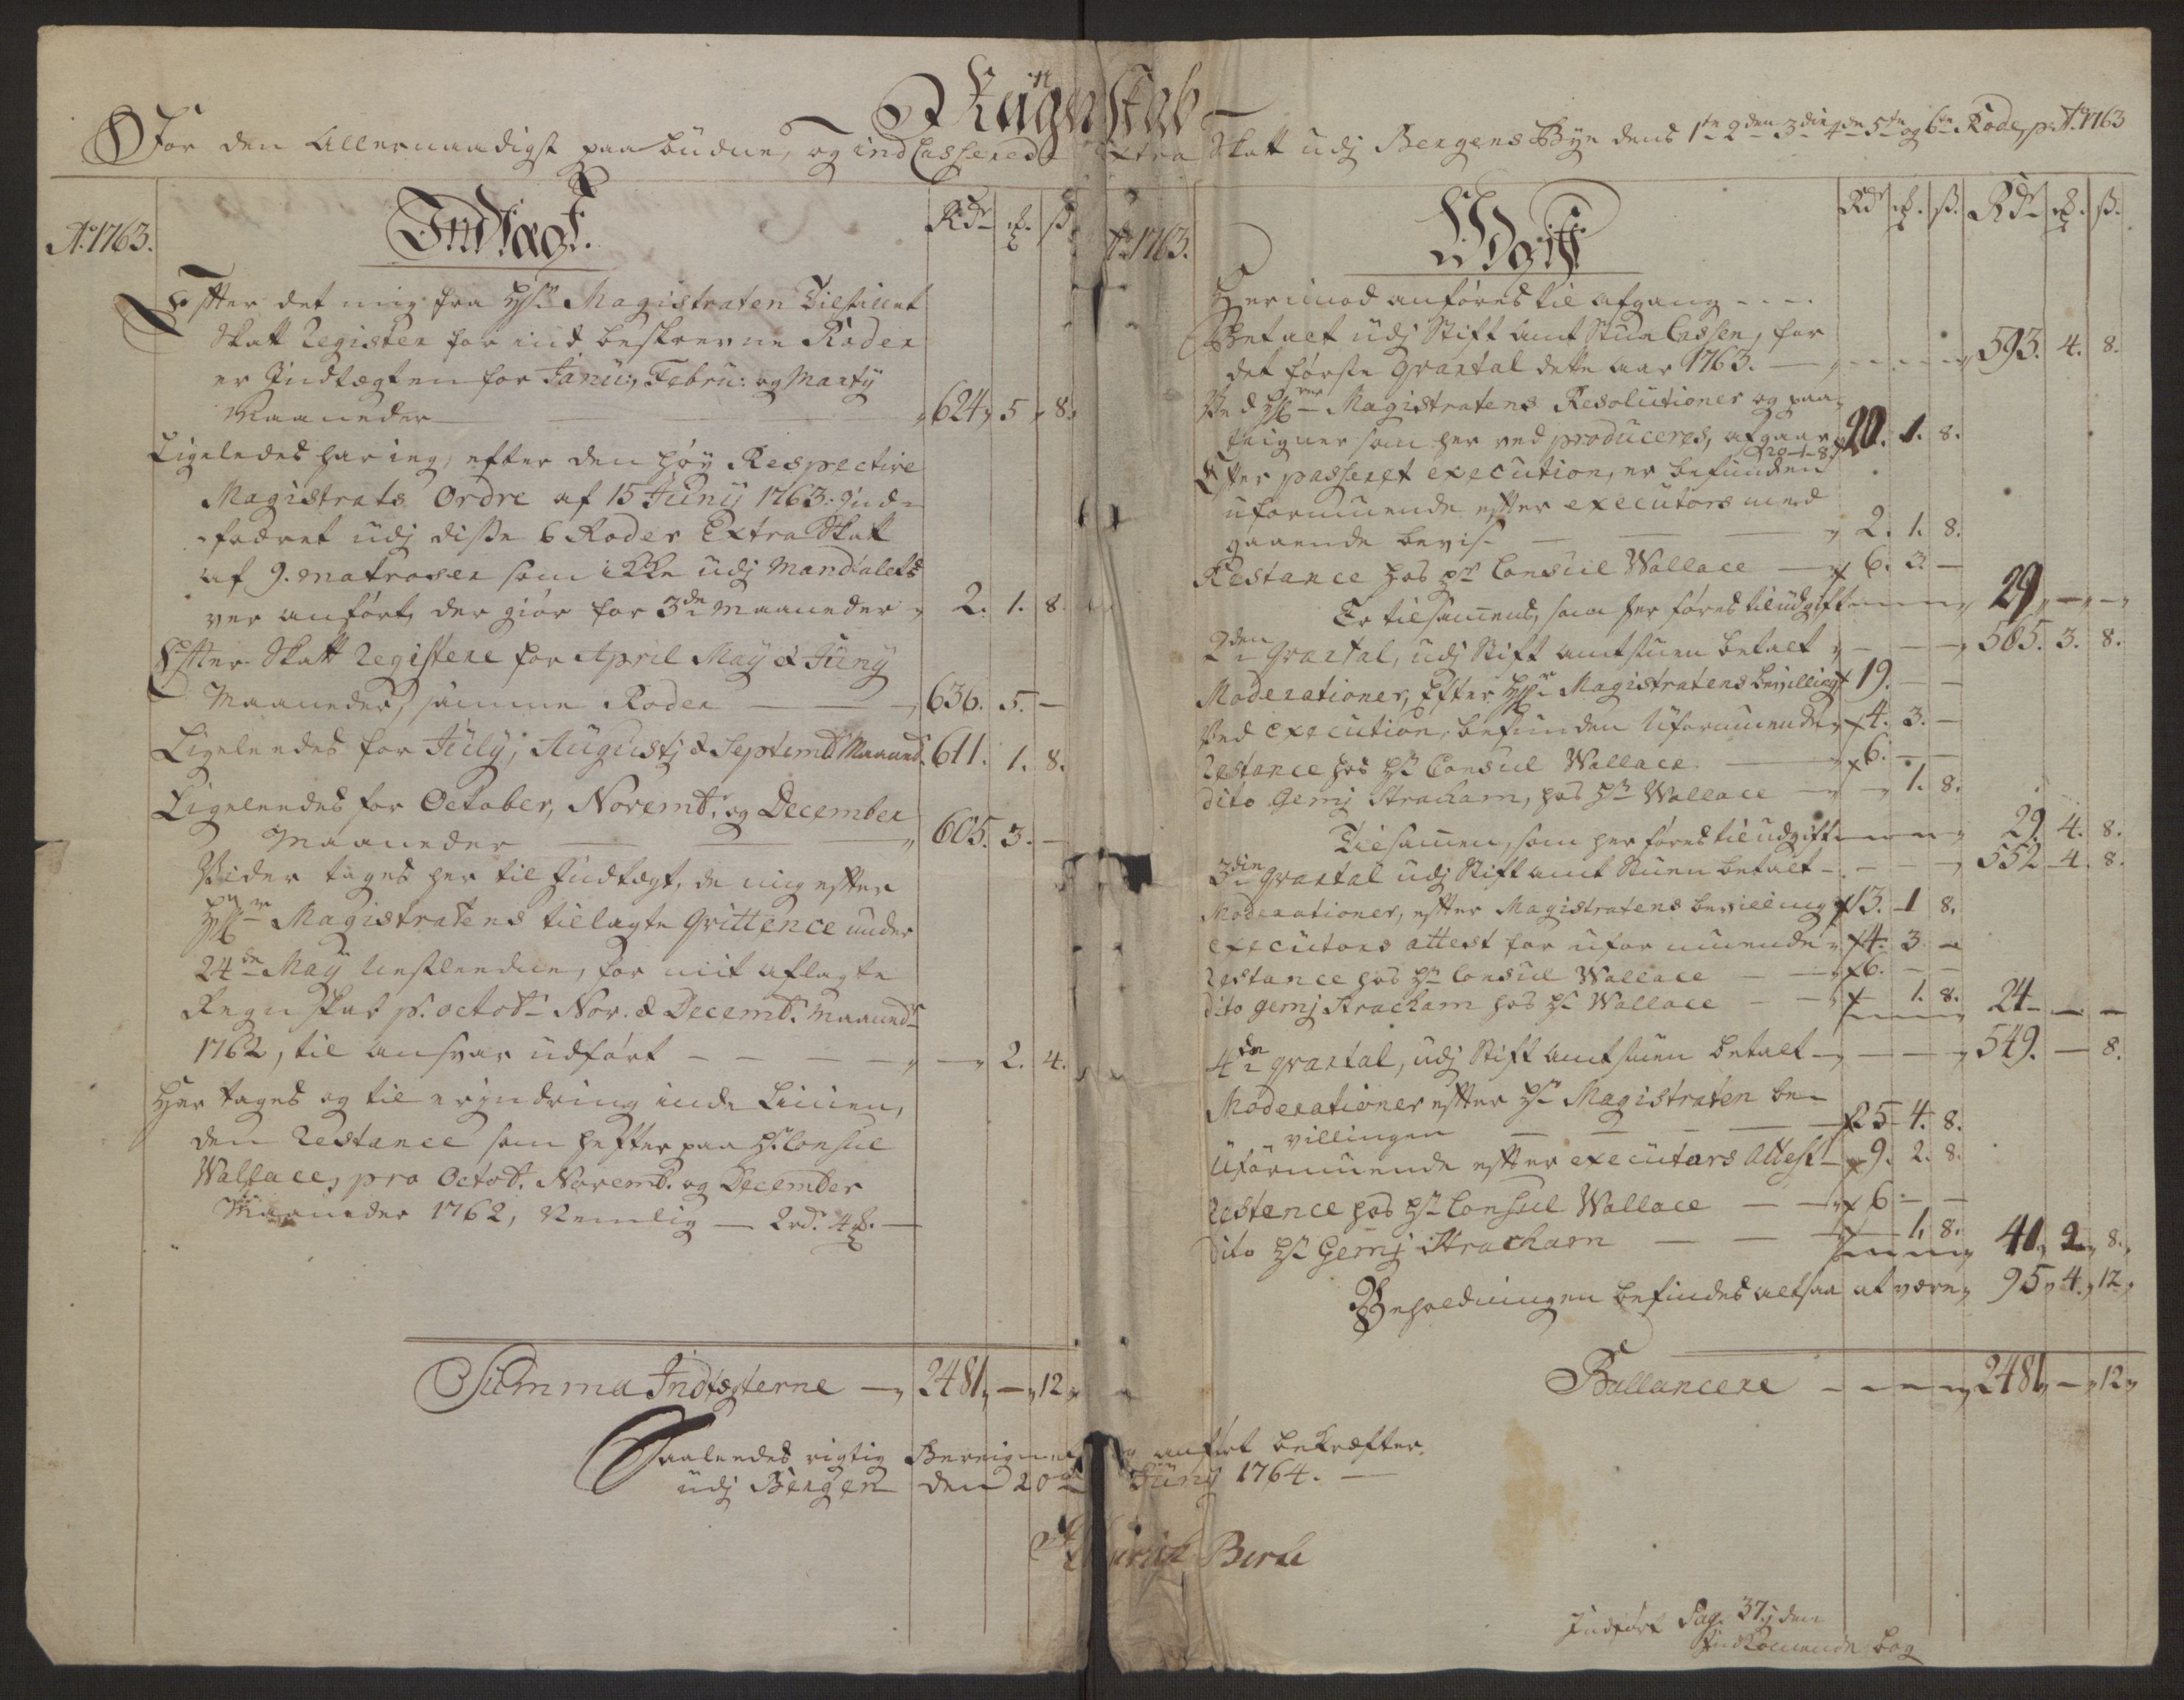 Regnskab
For den Allernaadigst paabudne, og indCasserede Extra Skatt udj Bergens Bye dens 1te 2den 3die 4de 5te og 6te Rode, pr Ao 1763
Ao 1763.
Indtægt.
Rdr ß
Efter det mig fra Hr. Magistraten Tilstillet
Skatt Register for ind beskrevne Roder
er Indtægten for Janu:, Febru: og Marty
Maaneder 624 5 8
Ligeledes har ieg, efter den høy Respective
Magistrats Ordre af 15 Juny 1763. Ind-
fodret udj disse 6 Roder Extra Skatt
af 9. matroser som ikke udj Mandtalet
ver anført, der giør for 3de Maaneder 2. 1. 8.
Efter Skatt Registere for April May & Juny
Maaneder, samme Roder 636. 5. —
Ligeleedes for July, Augustj & Septembr Maaned. 611. 1. 8.
Ligeleedes for October, Novembr. og December
Maaneder 605. 3. —
Vider tages her til Indtægt, de mig efter
Magistratens tillagte Qvittence under
24de May for mit aflagte
Regnskab pr. octobr Nov. & Decemb. Maaneder
1762, til ansvar udført — 2. 4.
Her tages og til erindring inden Linien,
den Restance som hefter paa Hr Consul
Wallace, pro Octob. Novemb. og December
Maaneder 1762, Nemlig — 2 rd. 4
Summa Indtægterne — 2481 — 12
Ao 1763.
Udgift
Rdr ß. Rdr ß.
Herimod anføres til afgang
Betalt udj Stift Amt Stue Cassen, for
det første Qvartal dette Aar 1763. 593. 4. 8.
Ved Magistratens Resolutioner og paa-
tegner som her ved produceres, afgaar 20. 1. 8.
20-1-8
Efter passeret execution, er befunden
uformuende efter executors med
gaaende bevis 2. 1. 8.
Restance hos Hr Consul Wallace 6. 3. —
Er tilsamens, som her føres til udgift 29 — —
2den Qvartal, udj Stift amtstuen betalt 585. 3. 8.
Moderationer, Efter Magistratens bevilling 19. — —
Ved execution, befunden Uformuende 4. 3. —
Restance hos Hr Consul Wallace 6. — —
dito Gemj Stracham, hos Hr Wallace — 1. 8.
Tilsamen, som her føres til udgift 29. 4. 8.
3die Qvartal udj Stift amt Stuen betalt 552 4. 8.
Moderationer, efter Magistratens bevilling 13. 1 8.
executors attest for uformuende 4. 3 —
Restance hos Hr Consul Wallace 6. — —
dito gemj Stracham hos Hr Wallace — 1. 8. 24 — —
4de qvartal, udj Stift amtstuen betalt 549. — 8.
Moderationer efter Hr Magistraten be-
villingen 25 4. 8.
Uformuende efter executors Attest 9. 2. 8.
Restance hos Hr Consul Wallace 6 — —
dito Hr Gemj Stracham 1. 8. 41. 2 8.
Beholdningen befindes altsaa at være 95 4. 12
Ballancere 2481 — 12
Saaleedes rigtig Beregnet og anført bekræfter.
udj Bergen den 20de Juny 1764.
Birle
Indført Pag. 37 j den
Indkomende bog